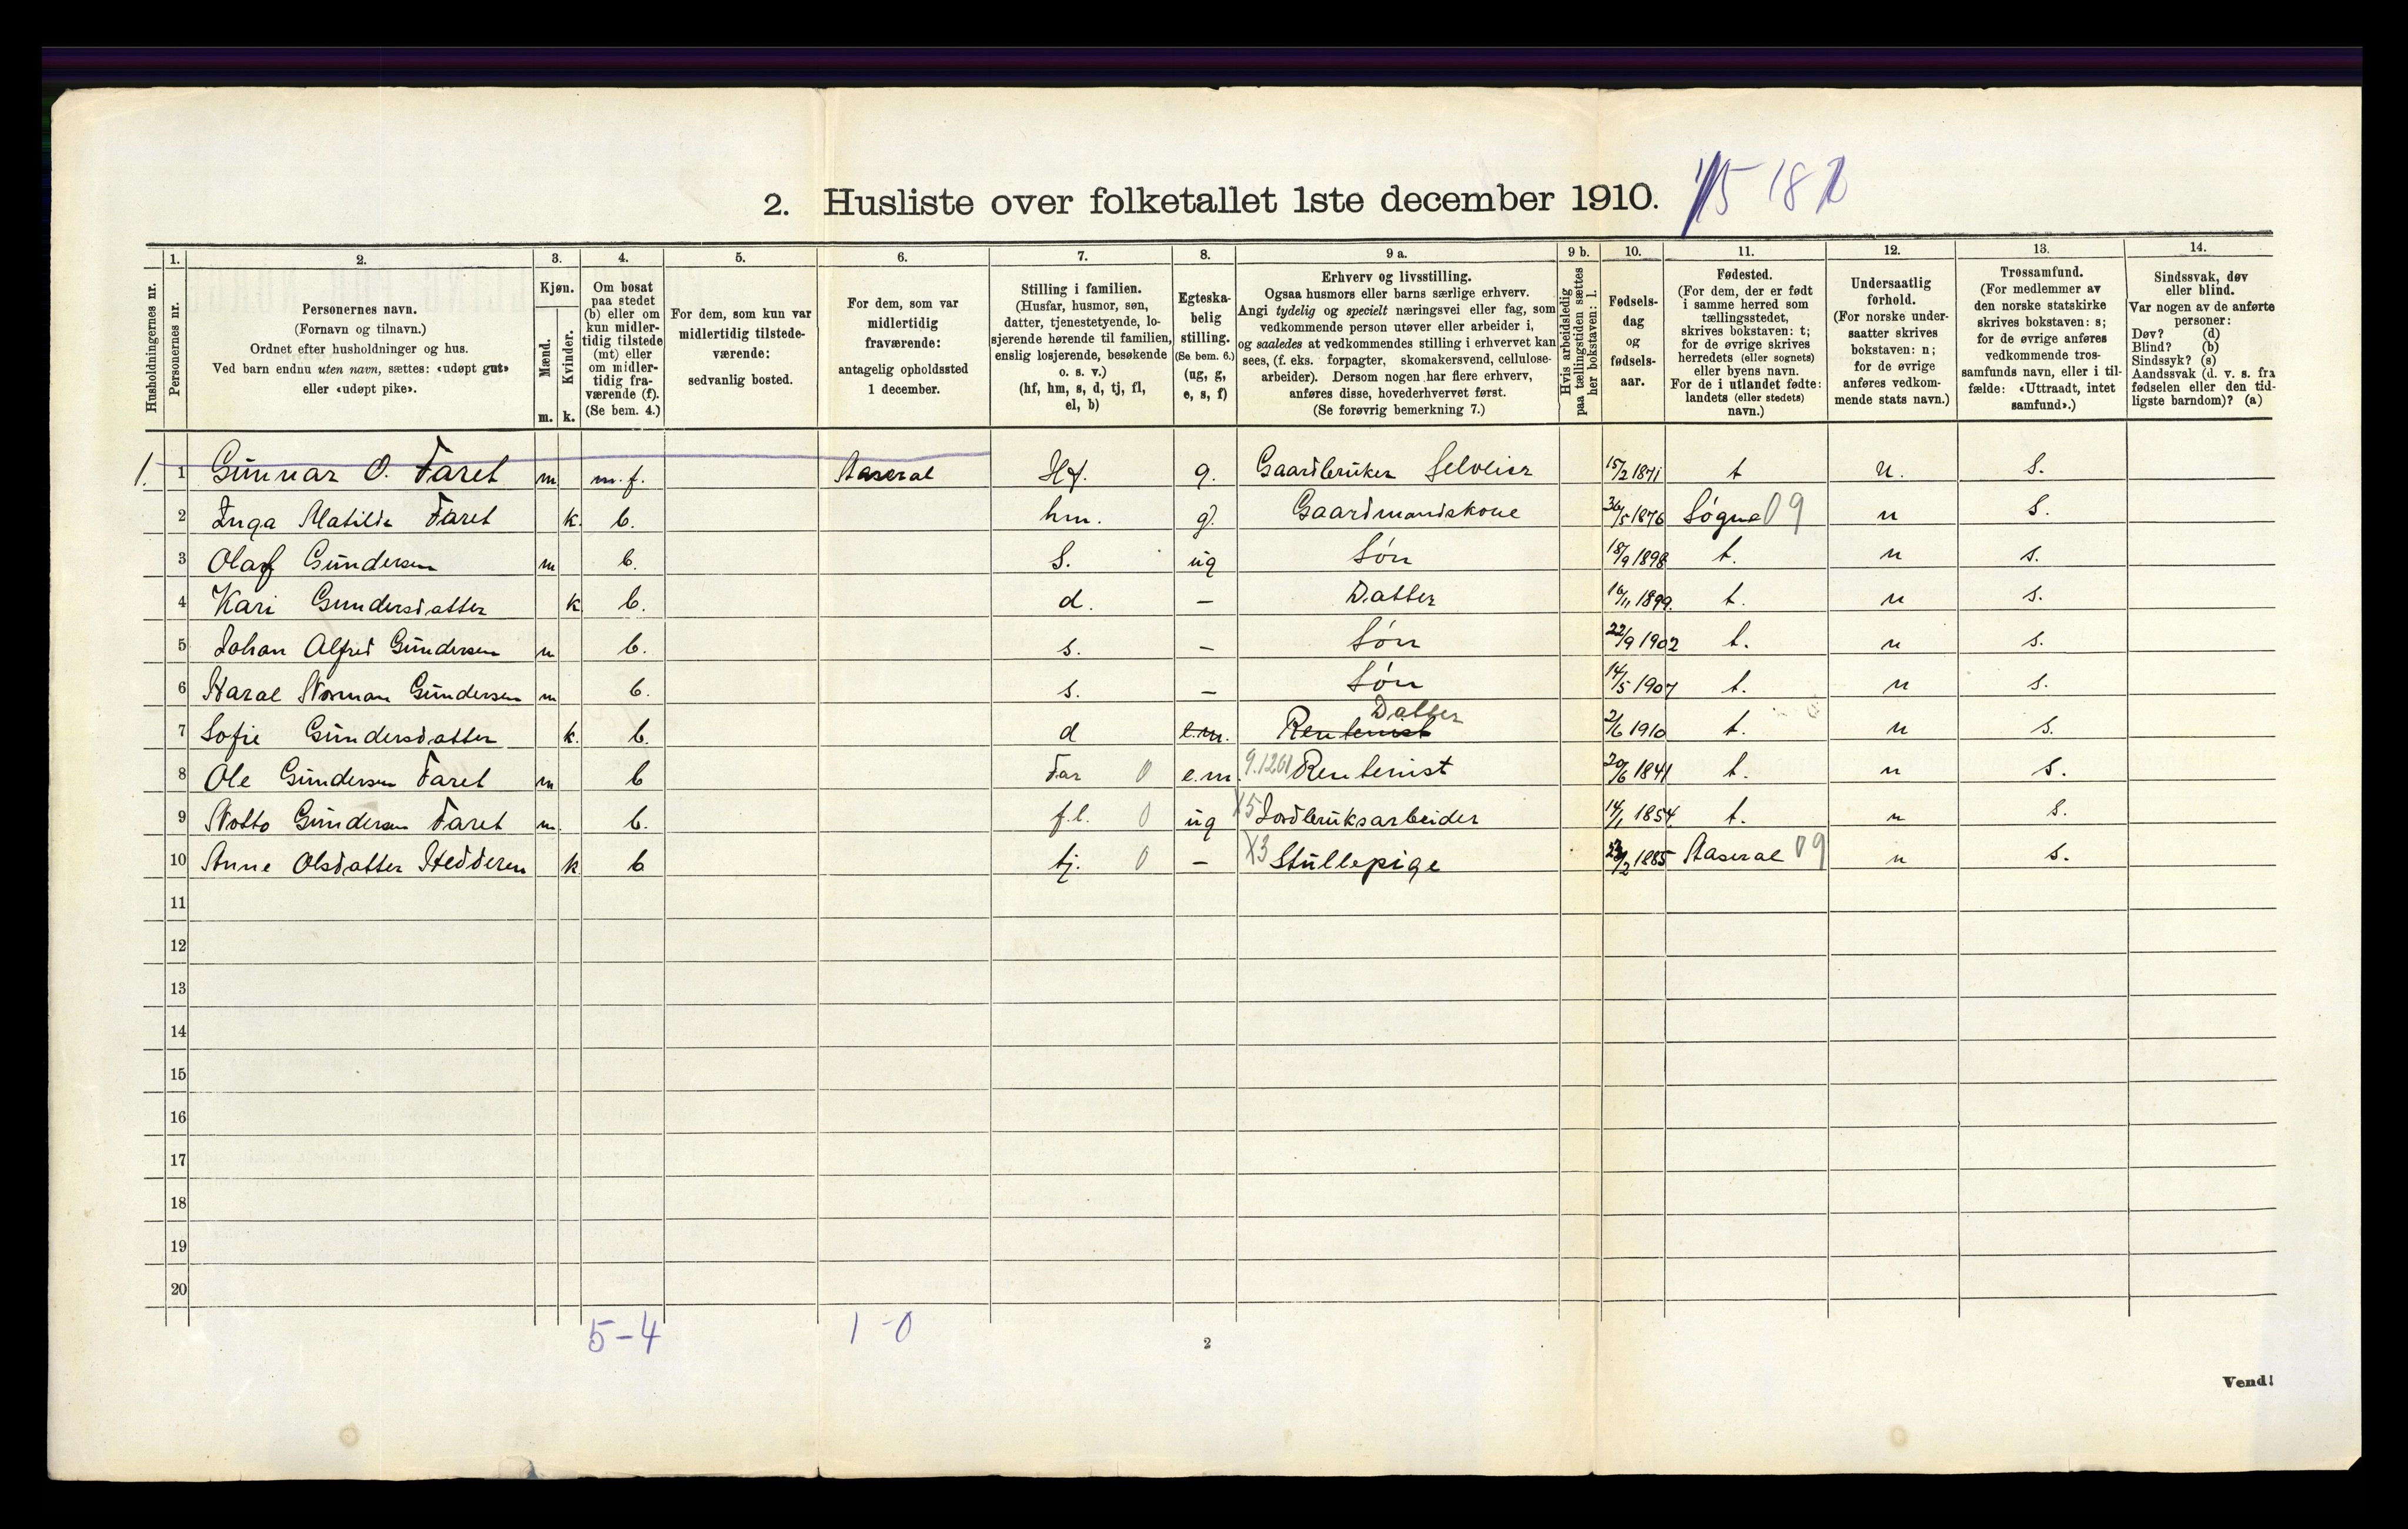 2. Husliste over folketallet 1ste december 1910.
1. 2. 3. 4. 5. 6. 7. 8. 9 a. 9 b. 10. 11. 12. 13. 14.
Husholdningernes nr.
Personernes nr.
Personernes navn.
(Fornavn og tilnavn.)
Ordnet efter husholdninger og hus.
Ved barn endnu uten navn, sættes: «udøpt gut»
eller «udøpt pike».
Kjøn.
Mænd.
Kvinder.
m. k.
Om bosat
paa stedet
(b) eller om
kun midler-
tidig tilstede
(mt) eller
om midler-
tidig fra-
værende (f).
(Se bem. 4.)
For dem, som kun var
midlertidig tilstede-
værende:
sedvanlig bosted.
For dem, som var
midlertidig
fraværende:
antagelig opholdssted
1 december.
Stilling i familien.
(Husfar, husmor, søn,
datter, tjenestetyende, lo-
sjerende hørende til familien,
enslig losjerende, besøkende
o. s. v.)
(hf, hm, s, d, tj, fl,
el, b)
Egteska-
belig
stilling.
(Se bem. 6.)
(ug, g,
e, s, f)
Erhverv og livsstilling.
Ogsaa husmors eller barns særlige erhverv.
Angi tydelig og specielt næringsvei eller fag, som
vedkommende person utøver eller arbeider i,
og saaledes at vedkommendes stilling i erhvervet kan
sees, (f. eks. forpagter, skomakersvend, cellulose-
arbeider). Dersom nogen har flere erhverv,
anføres disse, hovederhvervet først.
(Se forøvrig bemerkning 7.)
Hvis arbeidsledig
paa tællingstiden sættes
her bokstaven: l.
Fødsels-
dag
og
fødsels-
aar.
Fødested.
(For dem, der er født
i samme herred som
tællingsstedet,
skrives bokstaven: t;
for de øvrige skrives
herredets (eller sognets)
eller byens navn.
For de i utlandet fødte:
landets (eller stedets)
navn.)
Undersaatlig
forhold.
(For norske under-
saatter skrives
bokstaven: n;
for de øvrige
anføres vedkom-
mende stats navn.)
Trossamfund.
(For medlemmer av
den norske statskirke
skrives bokstaven: s;
for de øvrige anføres
vedkommende tros-
samfunds navn, eller i til-
fælde: «Uttraadt, intet
samfund».)
Sindssvak, døv
eller blind.
Var nogen av de anførte
personer:
Døv? (d)
Blind? (b)
Sindssyk? (s)
Aandssvak (d. v. s. fra
fødselen eller den tid-
ligste barndom)? (a)
1. 1 Gunnar O. Faret m m.f. Aaseral Hf. g. Gaardbruker Selveier 15/2 1871 t n. S.
2 Inga Matilde Faret k. b. hm. g. Gaardmandskone 30/5 1876 Søgne 09 n S.
3 Olaf Gundersen m b. S. ug Søn 18/9 1898 t. n s.
4 Kari Gundersdatter k b. d. — Datter 16/11 1899. t. n s.
5 Johan Alfred Gundersen m b. s. — Søn 22/9 1902 t. n s.
6 Haral Norman Gundersen m b. s. — Søn 14/5 1907 t. n s.
7 Sofie Gundersdatter k. b. d e.m. Rentenist Datter 2/6 1910 t. n s.
8 Ole Gundersen Faret m b Far 0 e.m. 9.1201 Rentenist 20/6 1841 t. n s.
9 Notto Gundersen Faret m. b. f.l. 0 ug X5 Jordbruksarbeider 14/1 1854 t. n s.
10 Anne Olsdatter Hedderen k b tj. 0 — X3 Stullepige 1885 Aaseral 09 n s.
11
12
13
14
15
16
17
18
19
20
5-4 1-0
2
Vend!